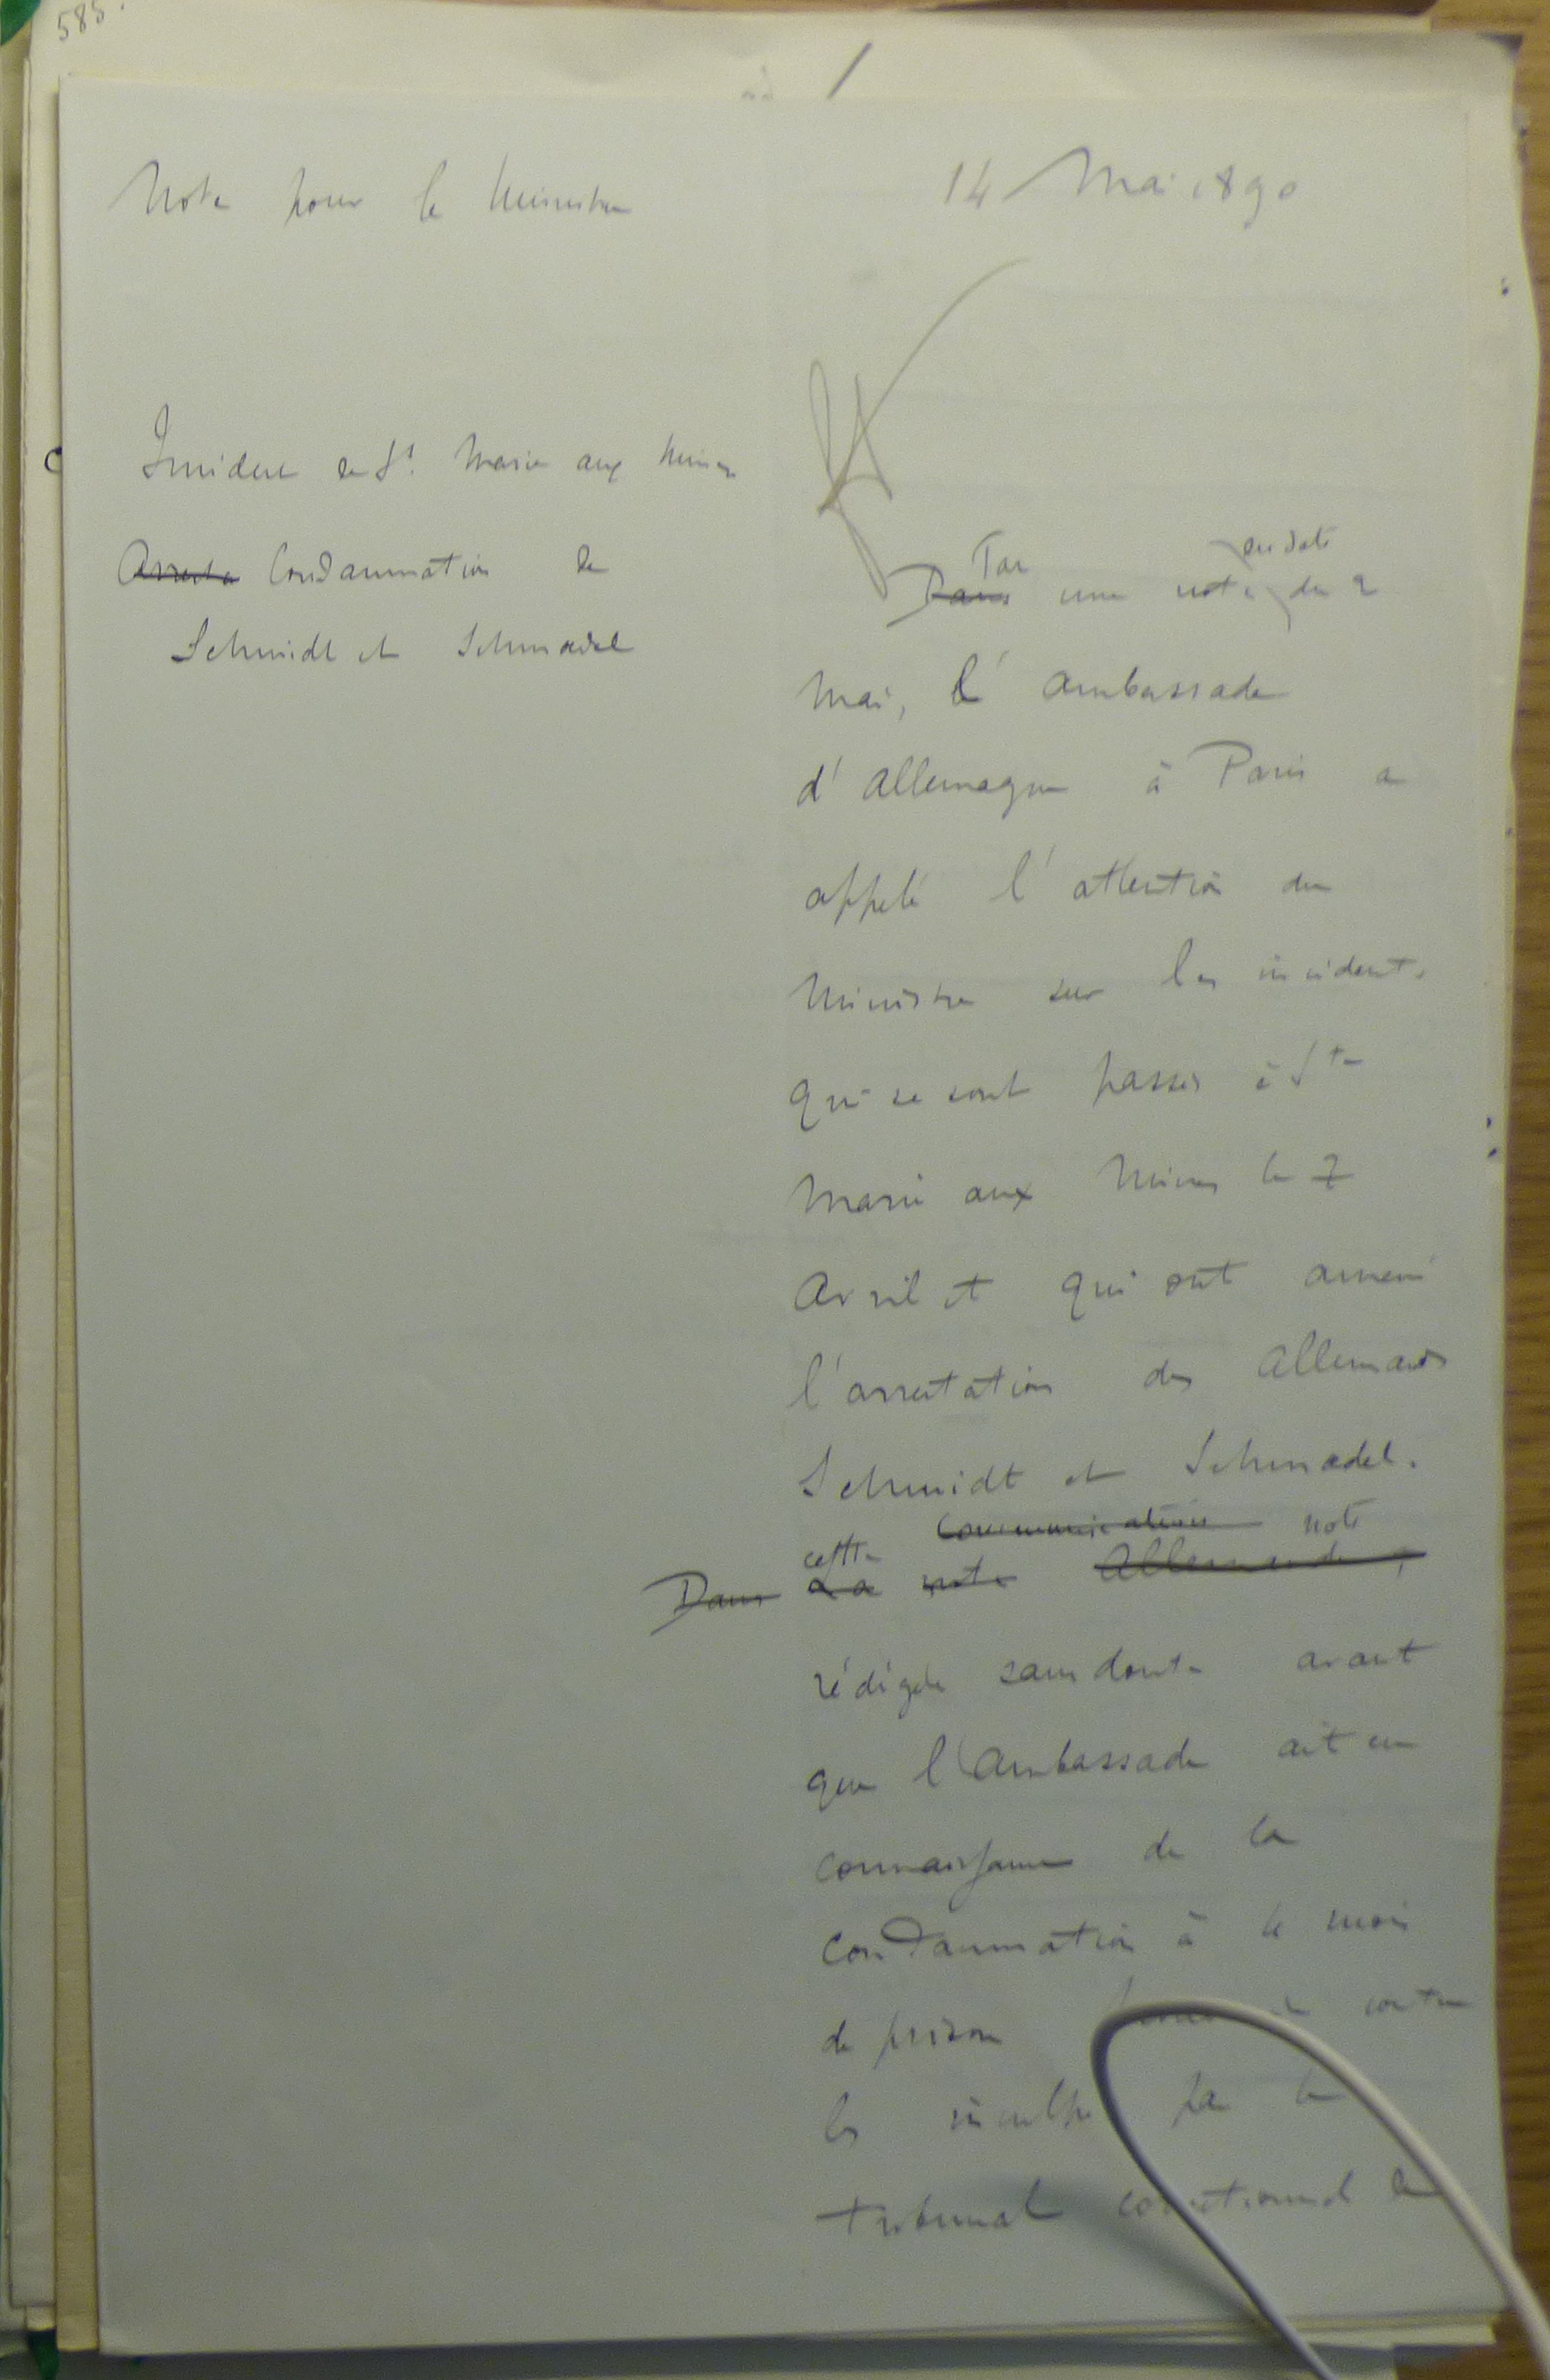 585.
14 Mai 1890
Note pour le Ministre
Incident de St. Marie aux Mines
Arresta Condamnation de
Schmidt et Schmadel
Par en date
Dans une note du 2
Mai, l'ambassade
d'allemagne à Paris a
appelé l'attention du
Ministre sur les incidents
qui se sont passés à Ste
Marie aux Mines le 7
Avril et qui ont amené
l'arrestation des allemands
Schmidt et Schmadel.
cette communication note
Dans La note Allemande,
rédigée sans doute avant
que l'ambassade ait eu
connaissance de la
condamnation à mois
de prison contre
les par le
tribunal correctionnel de